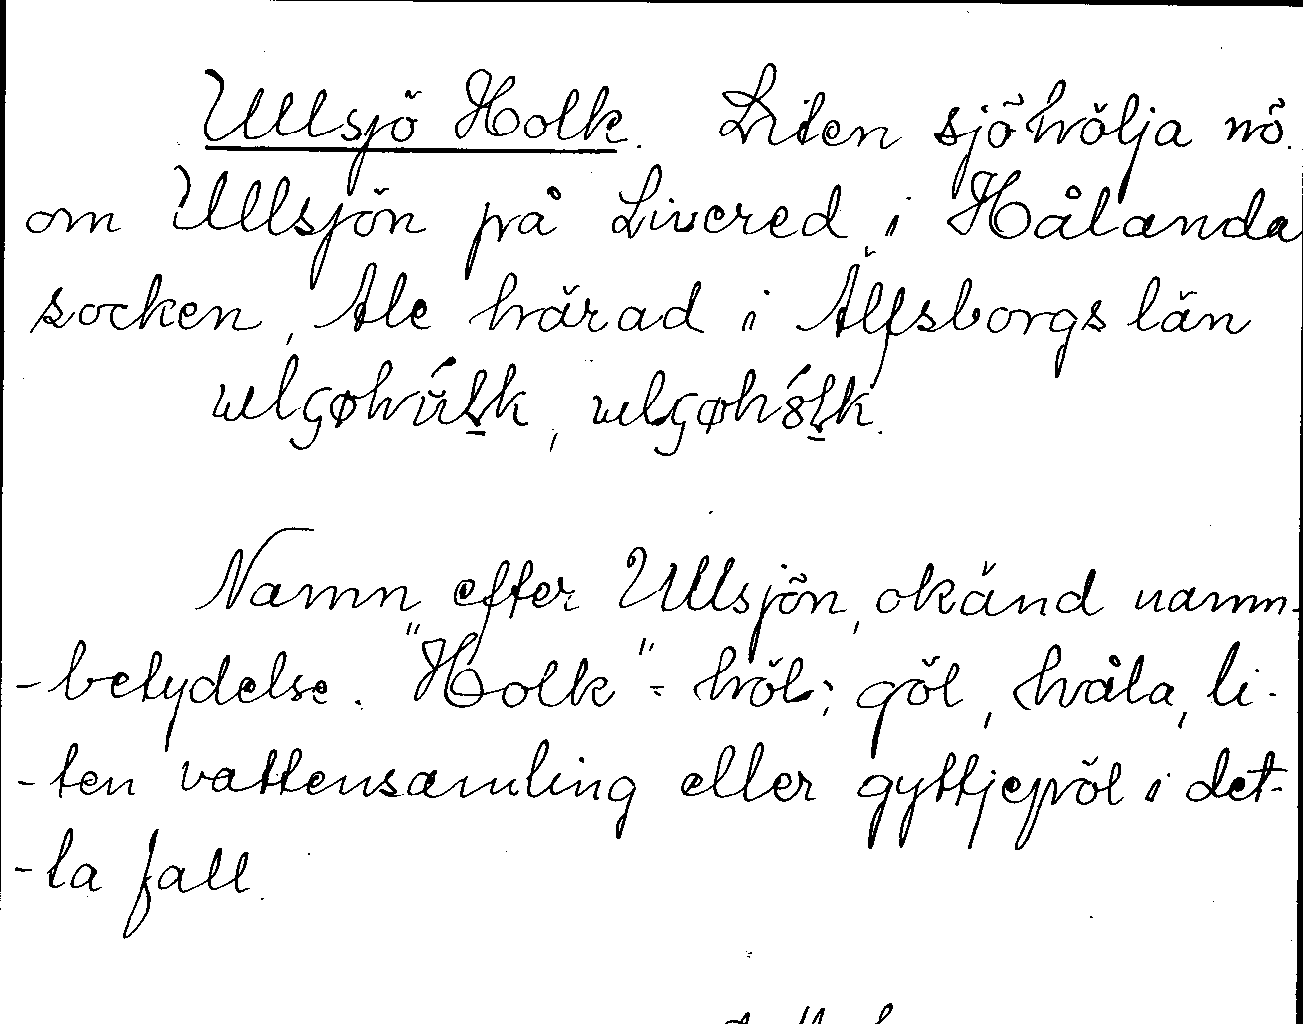 Ullsjö Holk. Liten sjöhölja nö.
om Ullsjön på Livered i Hålanda
socken, Ale härad i Älfsborgs län
Namn efter Ullsjön, okänd namn-
-betydelse. "Holk" = höl; göl, håla, li-
-ten vattensamling eller gyttjepöl i det-
-ta fall.